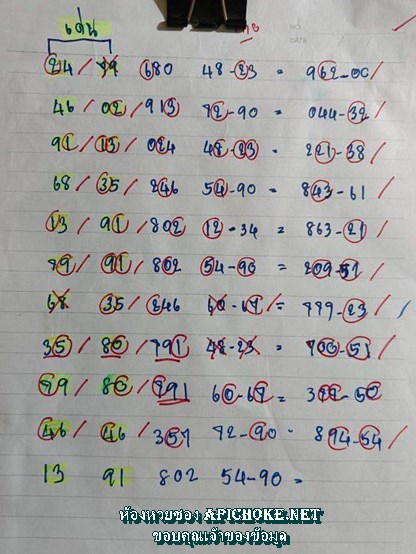 เด่น
24 / 79 680 48-23 = 962-00 /
46 / 02 / 913 72-90 = 044-32 /
91 / 13 / 024 48-23 = 221-38 /
68 / 35 / 246 54-90 = 843-61 /
13 / 91 / 802 12-34 = 863-21 /
79 / 91 / 802 54-90 = 209-51 /
68 35 / 246 60-67 / = 779-23 / /
35 / 80 / 791 48-23 = 700-51 /
79 / 80 / 791 60-67 = 377-50
46 / 46 / 357 72-90 - 894-54 /
13 91 802 54-90 =
ห้องหวยซอง APICHOKE.NET
ขอบคุณเจ้าของข้อมูล